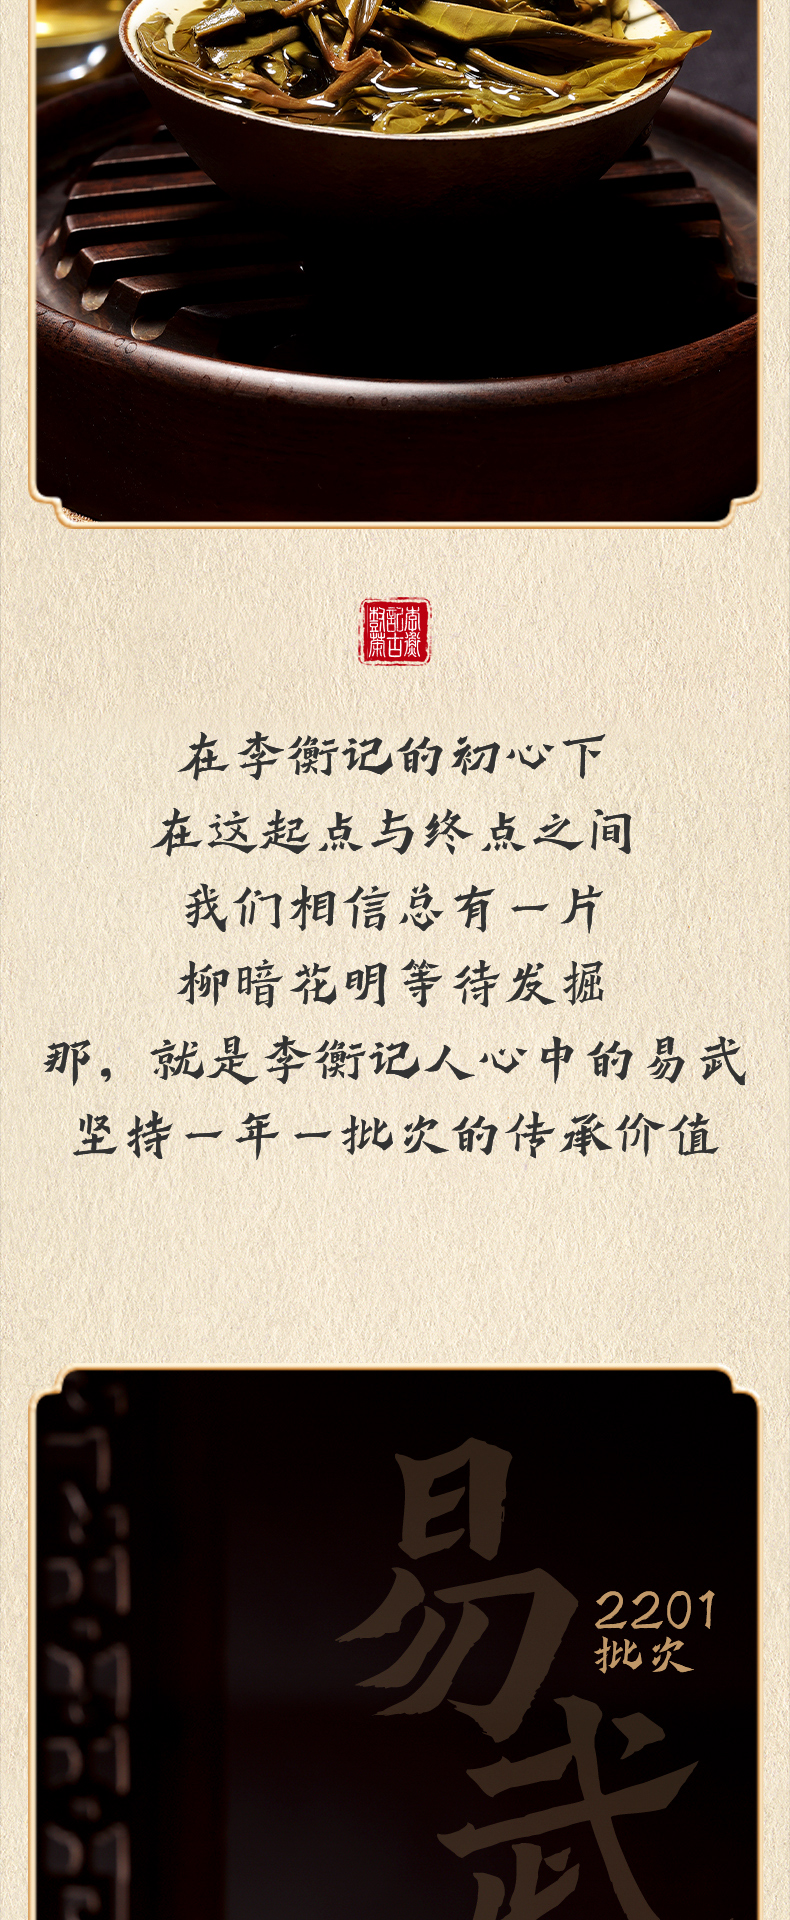 李衡
記古
樹茶
在李衡记的初心下
在这起点与终点之间
我们相信总有一片
柳暗花明等待发掘
那，就是李衡记人心中的易武
坚持一年一批次的传承价值
易武
2201
批次